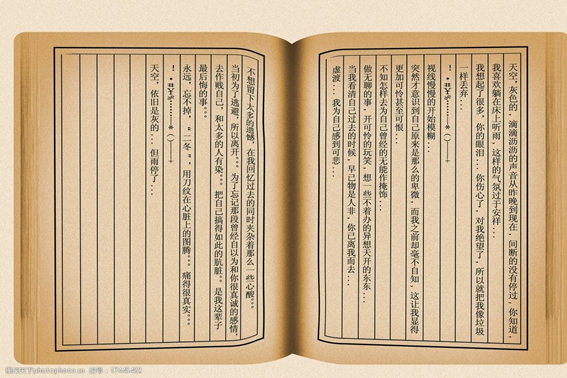 天空，灰色的，滴滴沥沥的声音从昨晚到现在，间断的没有停过，你知道，
我喜欢躺在床上听雨，这样的气氛过于安祥...
我想起了很多，你的眼泪...你伤心了，对我绝望了，所以就把我像垃圾
一样丢弃...
视线慢慢的开始模糊...
突然才意识到自己原来是那么的卑微，而我之前却毫不自知，这让我显得
更加可怜甚至可恨...
不知怎样去为自己曾经的无能作掩饰...
做无聊的事，开可怜的玩笑，想一些不着边的异想天开的东东...
当我看清自己过去的时候，早已物是人非，你已离我而去...
虚渡...我为自己感到可悲...
不想留下太多的遗憾，在我回忆过去的同时夹杂着那么一些心酸...
当初为了逃避，所以离开...为了忘记那段曾经自以为和你很真诚的感情，
去作贱自己，和太多的人有染...把自己搞得如此的肮脏...是我这辈子
最后悔的事...
永远，忘不掉，"二冬"，用刀纹在心脏上的图腾...痛得很真实...
天空，依旧是灰的...但雨停了...